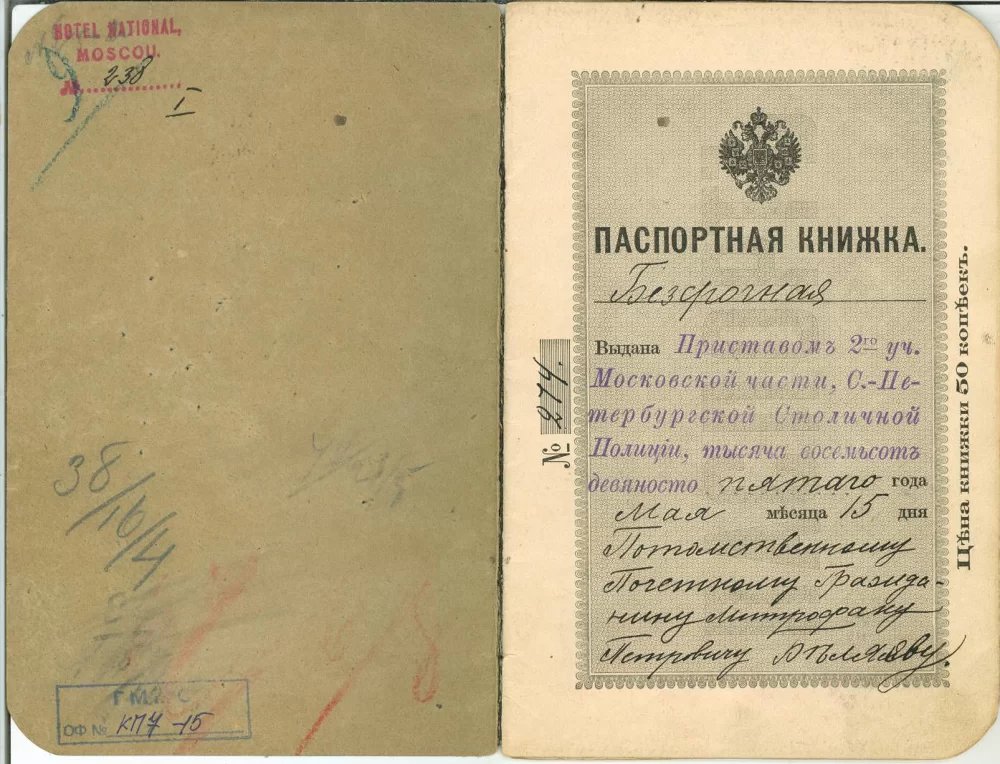 HOTEL NATIONAL,
MOSCOU.
№ 238
I
38/16/4
Г М
ОФ № КП7-15
ПАСПОРТНАЯ КНИЖКА.
Безсрочная
Выдана Приставомъ 2го уч.
Московской части, С.-Пе-
тербургской Столичной
Полиціи, тысяча восемьсотъ
девяносто пятаго года
Мая мѣсяца 15 дня
Потомственному
Почетному Гражда-
нину Митрофану
Петровичу Бѣляеву
№ 274.
Цѣна книжки 50 копѣекъ.